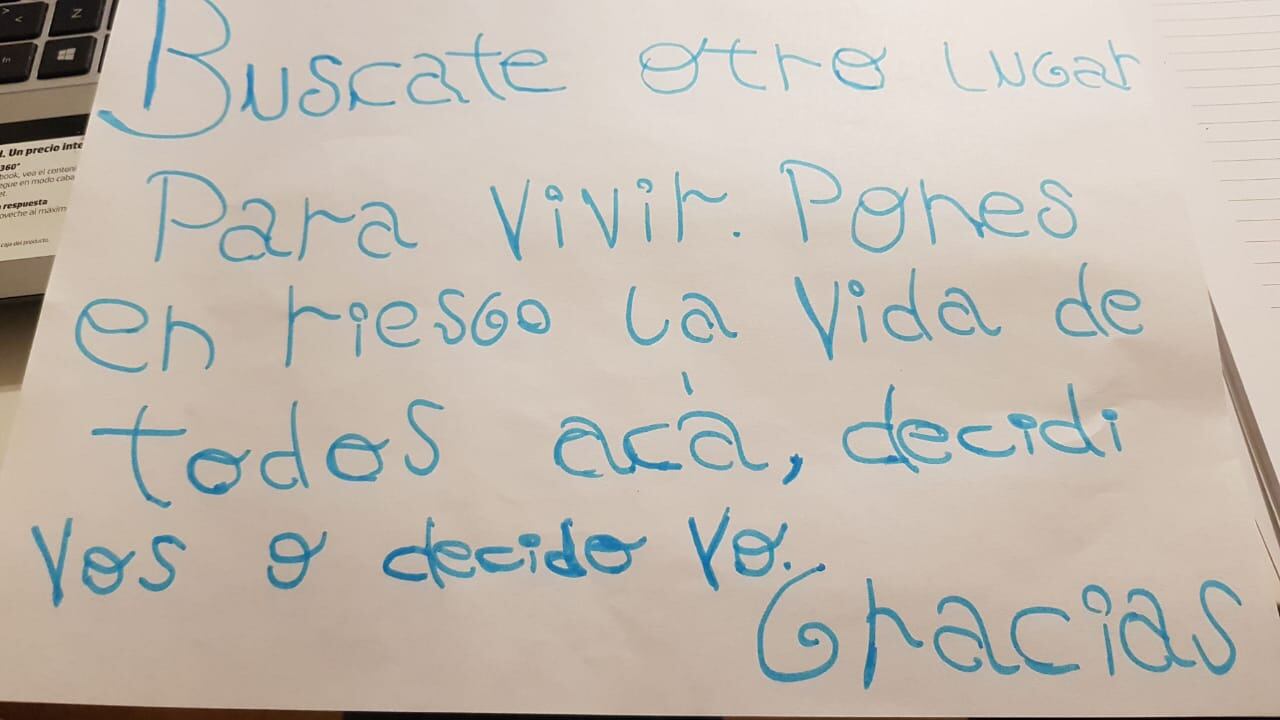 Buscate otro lugar
Para vivir. Pones
en riesgo la vida de
todos acá, decidi
vos o decido yo.
Gracias
N
fn
. Un precio inte
360°
book, vea el conteni
egue en modo caba
et.
respuesta
oveche al máxim
caja del producto.